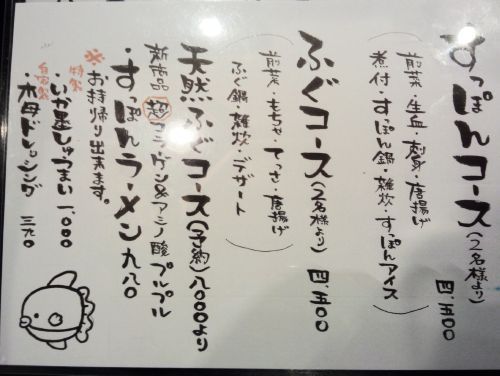 すっぽんコース(2名様より)
四、五〇〇
(前菜・生血・刺身・唐揚げ
煮付・すっぽん鍋・雑炊・すっぽんアイス)
ふぐコース(2名様より) 四、五〇〇
(前菜・もちゃ・てっさ・唐揚げ
ふぐ鍋・雑炊・デザート)
天然ふぐコース(予約)八〇〇〇より
新商品 超コラーゲン&アミノ酸 プルプル
・すっぽんラーメン 九八〇
※お持帰り出来ます。
特製
・いか墨しゅうまい 一、〇〇〇
自家製
・木母ドレッシング 三九〇